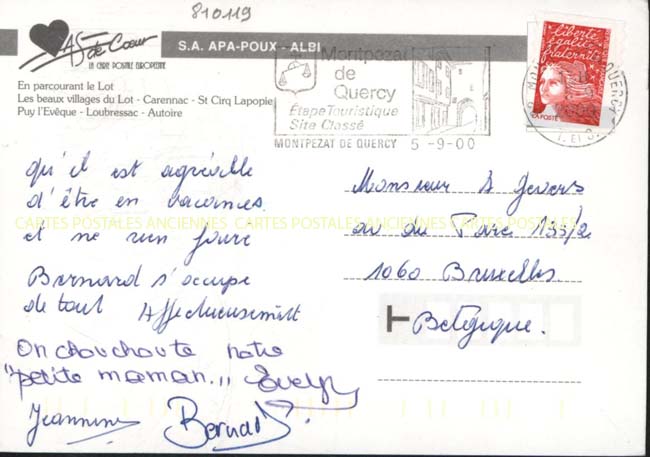 810119
AS de Cœur
LA CARTE POSTALE EUROPEENNE
S.A. APA-POUX - ALBI
En parcourant le Lot
Les beaux villages du Lot - Carennac - St Cirq Lapopie
Puy l'Evêque - Loubressac - Autoire
Montpezat
de
Quercy
Étape Touristique
Site Classé
MONTPEZAT DE QUERCY 5-9-00
liberté
égalité
fraternité
LA POSTE
QUERCY
qu'il est agréable
d'être en vacances
et ne rien faire
Bernard s'occupe
de tout Affectueusement
On chouchoute notre
"petite maman...
Evelyn
Jeannine Bernard
Monsieur A Jevers
av du Parc 133/2
1060 Bruxelles
Belgique.
CARTES POSTALES ANCIENNES CARTES POSTALES ANCIENNES CARTES POSTALES ANCIENNES